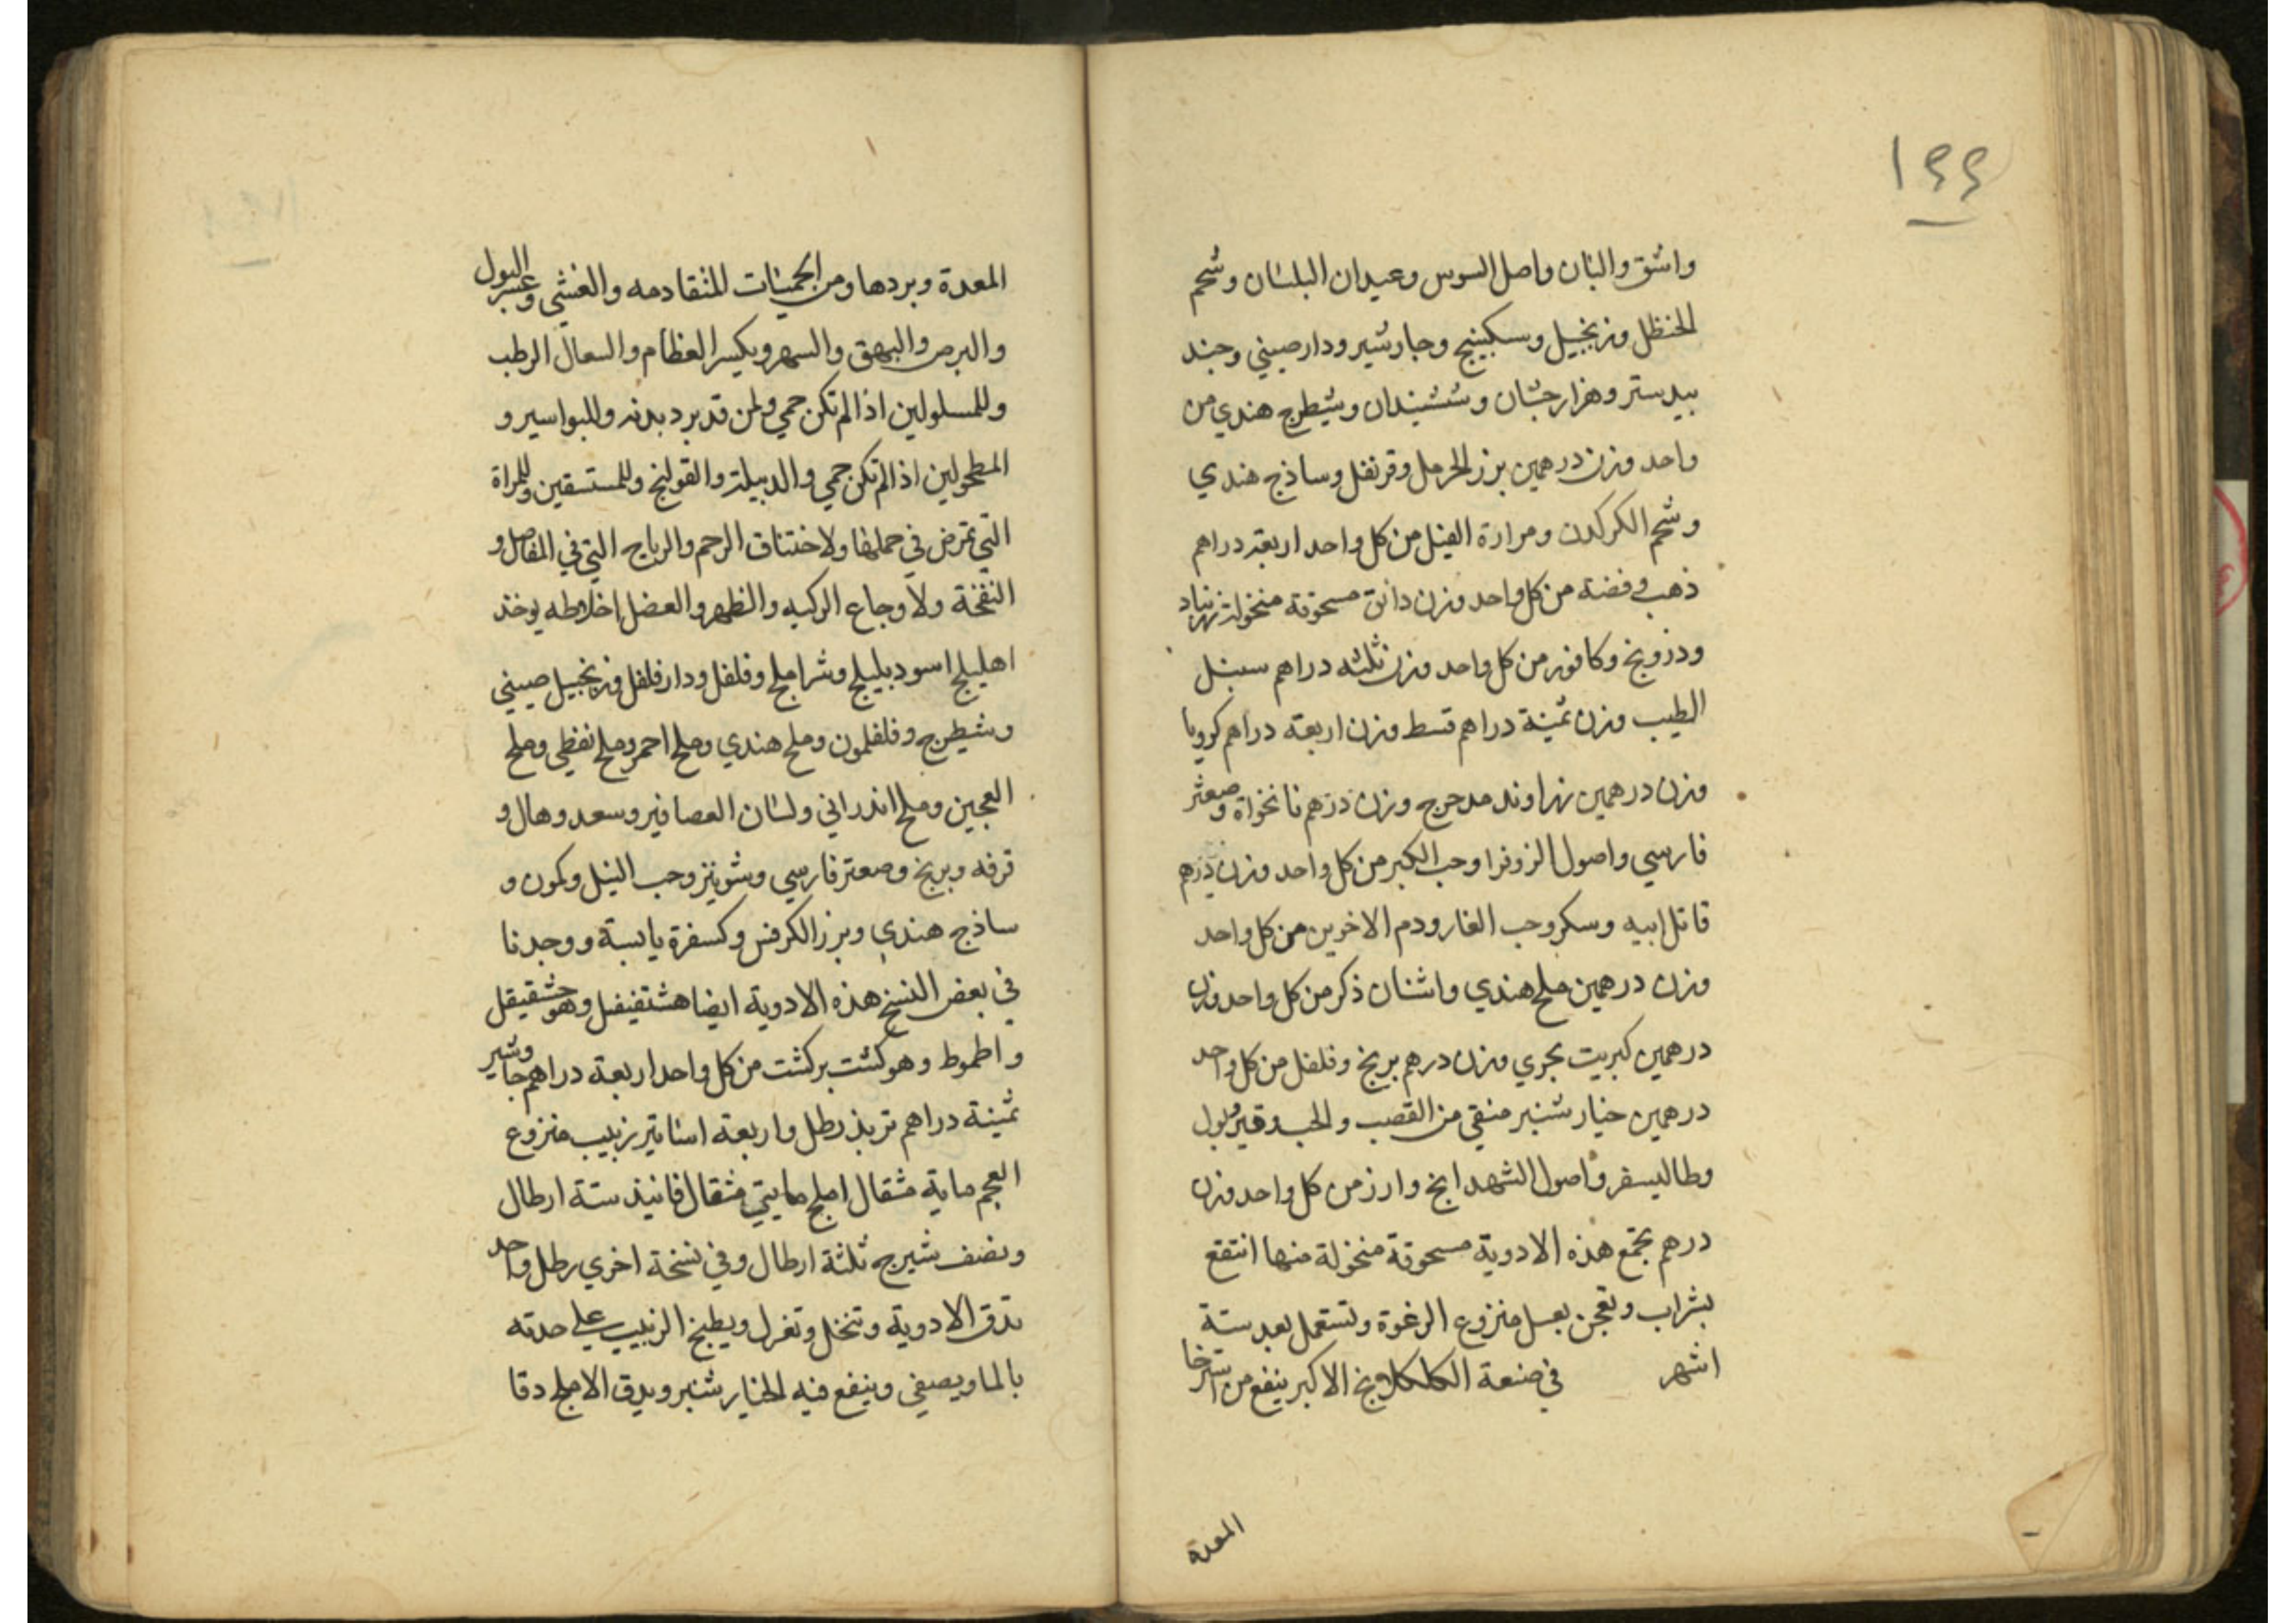 ١٤٤
واشق والبان واصل السوس وعيدان البلسان وشحم
الحنظل وزنجبيل وسكبينج وجاوشير ودارصيني وجند
بيدستر وهزارجشان وششبندان وشيطرج هندي من
واحد وزن درهمين بزر الحرمل وقرنفل وساذج هندي
وشحم الكركدن ومرارة الفيل من كل واحد اربعة دراهم
ذهب وفضة من كل واحد وزن دانق مسحوقة منخولة زرنباد
ودرونج وكافور من كل واحد وزن ثلثه دراهم سنبل
الطيب وزن ثمنية دراهم قسط وزن اربعة دراهم كرويا
وزن درهمين زراوند مدحرج وزن درهم نانخواة وصعتر
فارسي واصول الزوفرا وحب الكبر من كل واحد وزن درهم
قاتل ابيه وسكر وحب الغار ودم الاخوين من كل واحد
وزن درهمين ملح هندي واشنان ذكر من كل واحد وزن
درهمين كبريت بحري وزن درهم برنج وفلفل من كل واحد
درهمين خيار شنبر منقي من القصب والحب وقير وبول
وطاليسفر واصول الشهدانج وارز من كل واحد وزن
درهم تجمع هذه الادوية مسحوقة منخولة منها انتقع
بشراب وتعجن بعسل منزوع الرغوة وتستعمل بعد ستة
اشهر في صنعة الكلكلانج الاكبر ينفع من استرخا
المعدة
المعدة وبردها ومن الحميات المتقادمه والغشي وعسر البول
والبرص والبهق والسهر ويكسر العظام والسعال الرطب
وللمسلولين اذا لم تكن حمي ولمن قد برد بدنه وللبواسير و
المطحولين اذا لم تكن حمي والدبيلة والقولنج وللمستسقين وللمراة
التي تمرض في حملها ولاختناق الرحم والرياح التي في المفاصل و
النفخة ولاوجاع الركبه والظهر والعضل اخلاطه يوخذ
اهليلج اسود بليلج وشير املج وفلفل ودارفلفل وزنجبيل صيني
وشيطرج وفلفلمون وملح هندي وملح احمر وملح نفطي وملح
العجين وملح اندراني ولسان العصافير وسعد وهال و
قرفه وبرنج وصعتر فارسي وشونيز وحب النيل وكمون و
ساذج هندي وبزر الكرفس وكسفرة يابسة ووجدنا
في بعض النسخ هذه الادوية ايضا هشتفيفل وهو حشقيقل
واطموط وهو كشت بركشت من كل واحد اربعة دراهم جاوشير
ثمنية دراهم تربذ رطل واربعة اساتير زبيب منزوع
العجم ماية مثقال املج مايتي مثقال فانيذ ستة ارطال
ونصف شيرج ثلثة ارطال وفي نسخة اخري رطل واحد
تدق الادوية وتنخل وتغربل ويطبخ الزبيب علي حدته
بالما ويصفي وينقع فيه الخيار شنبر ويدق الاملج دقا